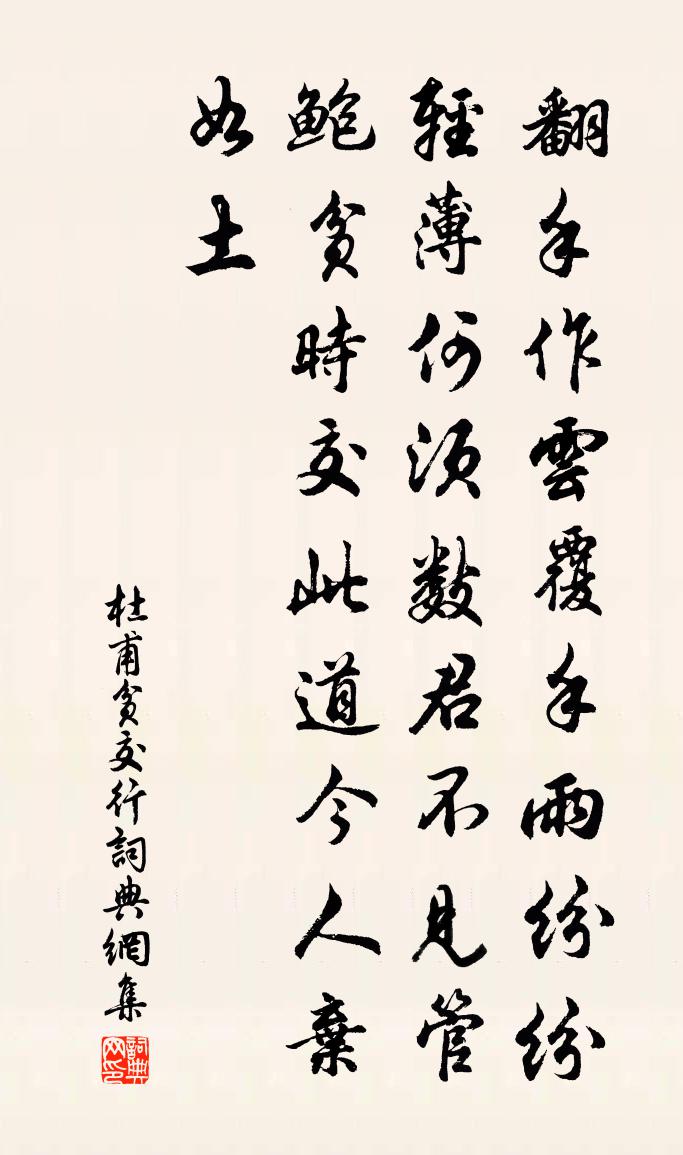 翻手作雲覆手雨紛紛
輕薄何須數君不見管
鮑貧時交此道今人棄
如土
杜甫貧交行詞典網集
詞典网印